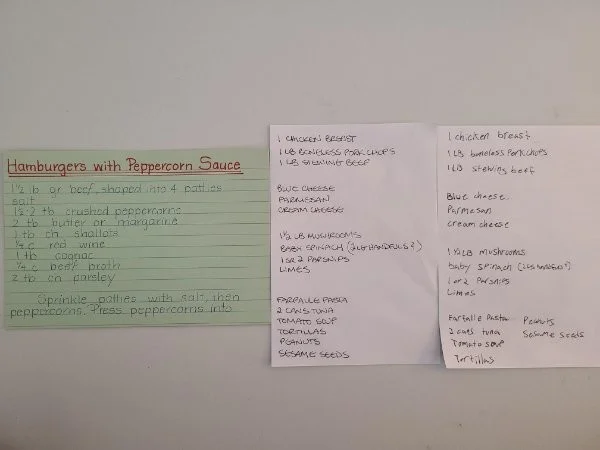 Hamburgers with Peppercorn Sauce
1½ lb gr beef, shaped into 4 patties
salt
1½-2 tb crushed peppercorns
2 tb butter or margarine
2 tb ch shallots
¼ c red wine
1 tb cognac
¼ c beef broth
2 tb ch parsley
Sprinkle patties with salt, then
peppercorns. Press peppercorns into
1 CHICKEN BREAST
1 LB BONELESS PORK CHOPS
1 LB STEWING BEEF
BLUE CHEESE
PARMESAN
CREAM CHEESE
1½ LB MUSHROOMS
BABY SPINACH (2 LG HANDFULS?)
1 OR 2 PARSNIPS
LIMES
FARFALLE PASTA
2 CANS TUNA
TOMATO SOUP
TORTILLAS
PEANUTS
SESAME SEEDS
1 chicken breast
1 LB boneless Pork chops
1 LB stewing beef
Blue cheese
Parmesan
cream cheese
1 ½ LB mushrooms
baby spinach (2 LG handfuls?)
1 or 2 Parsnips
Limes
Farfalle Pasta Peanuts
2 cans tuna Sesame seeds
Tomato soup
Tortillas